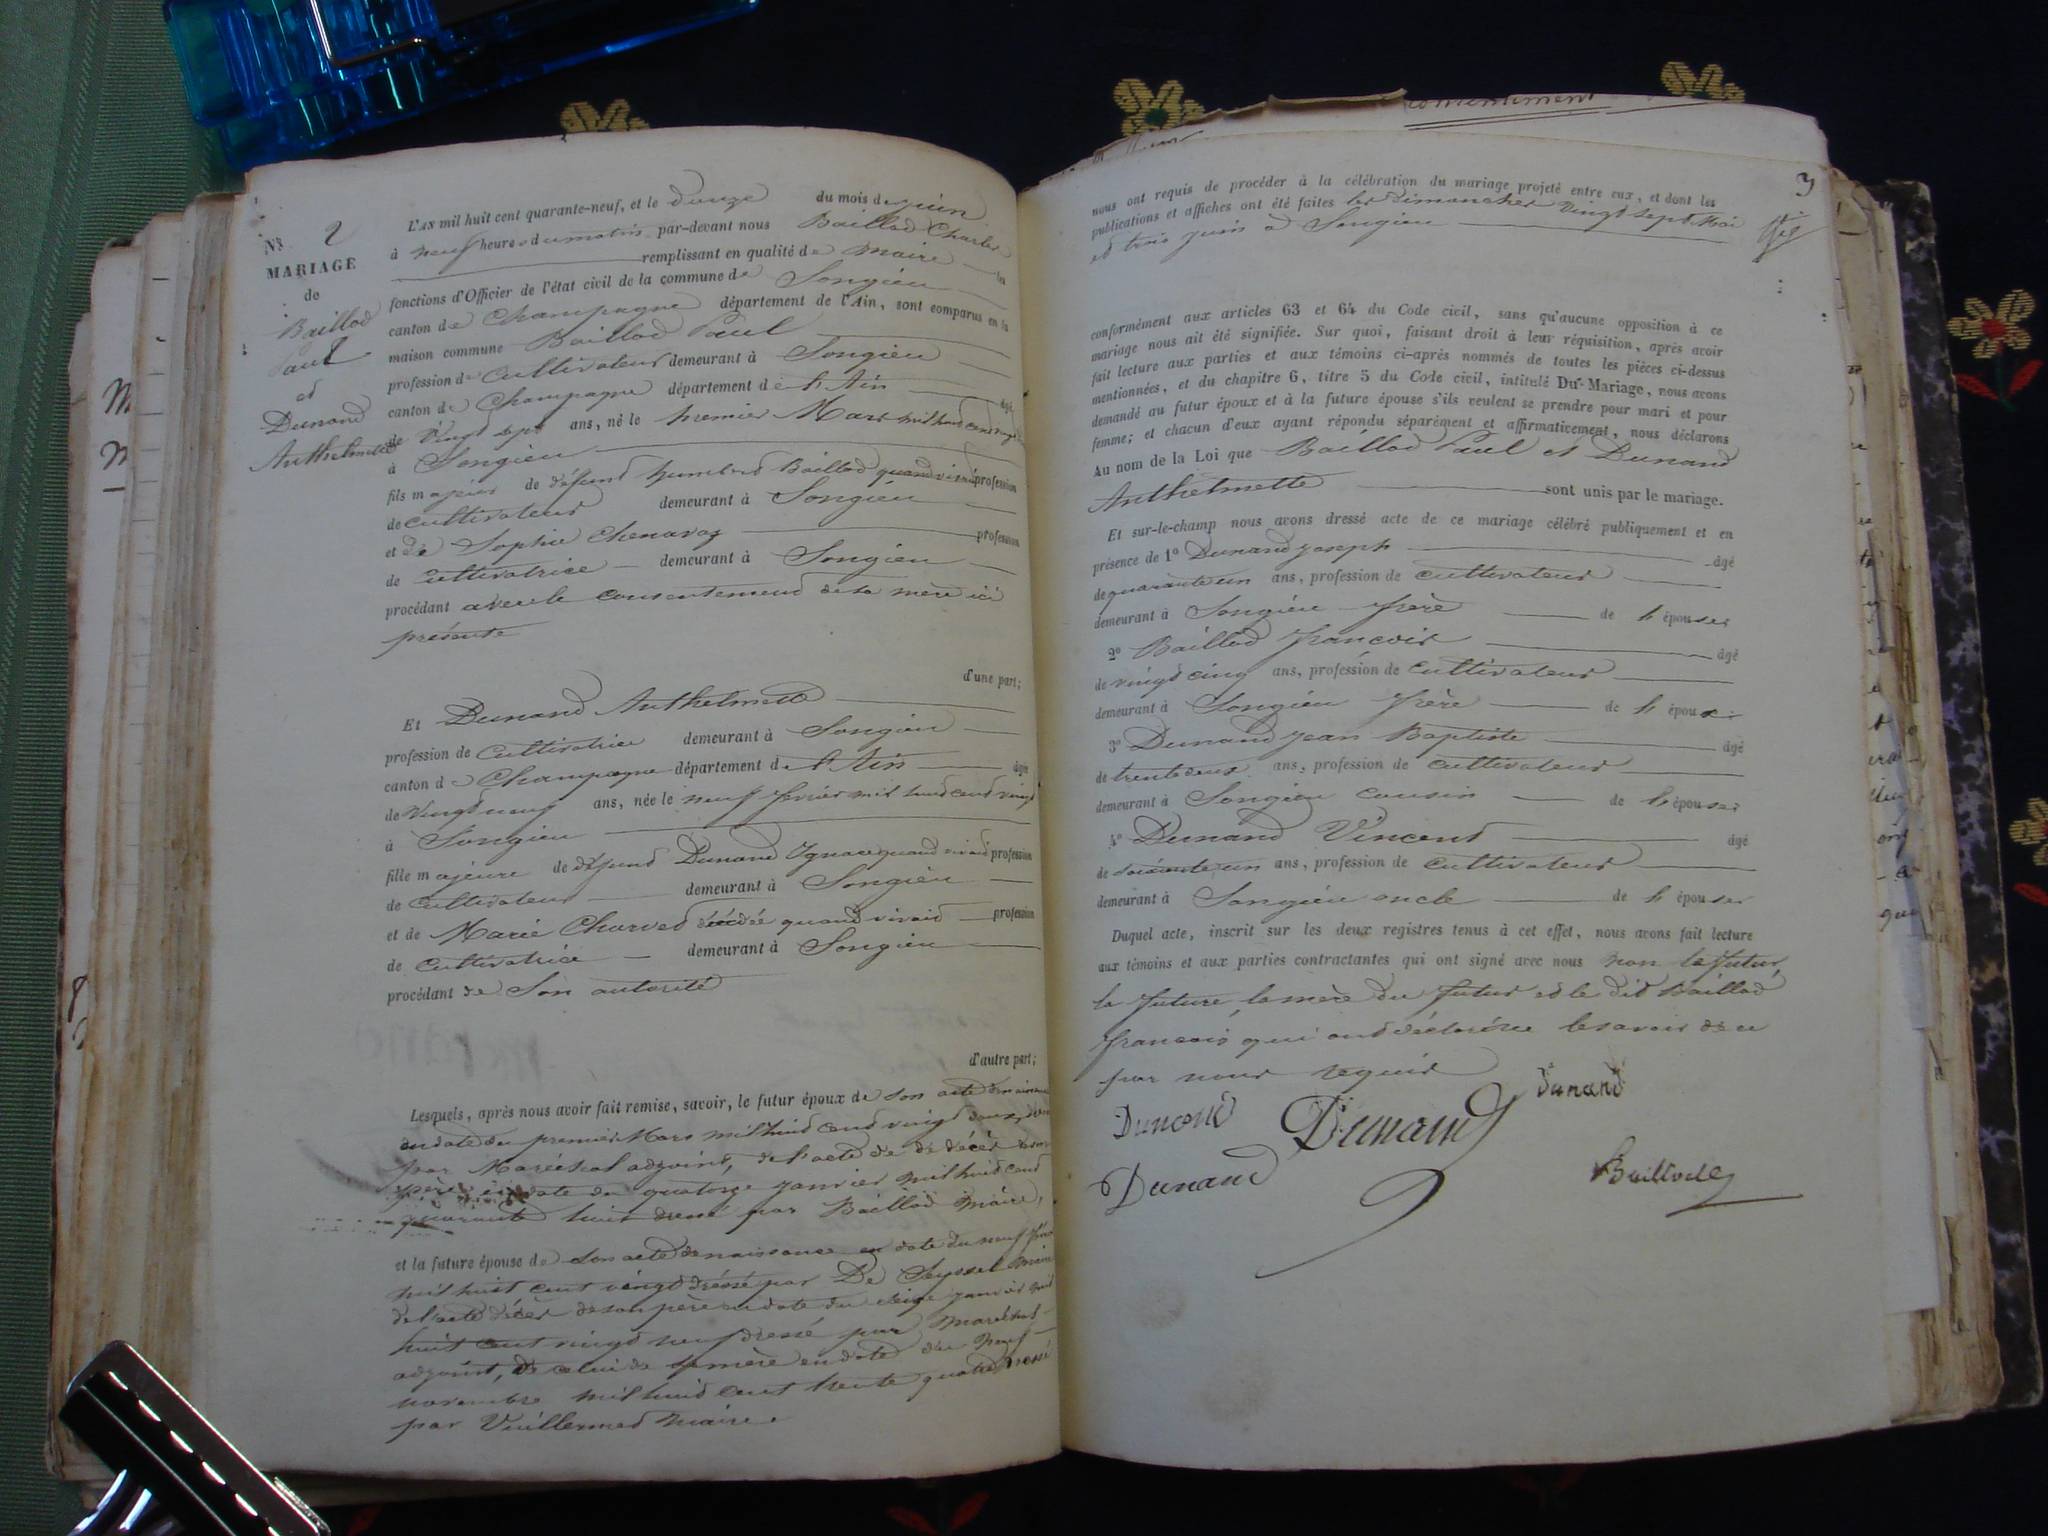 N° 2
MARIAGE
de
Baillod
Paul
et
Dunand
Anthelmette
L'AN mil huit cent quarante-neuf, et le douze du mois de juin
à neuf heures du matin par-devant nous Baillod Charles
remplissant en qualité de maire les
fonctions d'Officier de l'état civil de la commune de Songieu
canton de Champagne département de l'Ain, sont comparus en la
maison commune Baillod Paul
profession de Cultivateur demeurant à Songieu
canton de Champagne département de l'Ain âgé
de vingt sept ans, né le premier Mars mil huit cent vingt
à Songieu
fils majeur de défunt humbert Baillod quand vivait profession
de cultivateur demeurant à Songieu
et de Sophie Chenavaz profession
de cultivatrice demeurant à Songieu
procédant avec le consentement de sa mère ici
présente
d'une part;
Et Dunand Anthelmette
profession de Cultivatrice demeurant à Songieu
canton de Champagne département de l'Ain âgée
de vingt neuf ans, née le neuf février mil huit cent vingt
à Songieu
fille majeure de défunt Dunand Ygnace quand vivait profession
de Cultivateur demeurant à Songieu
et de Marie Charved décédée quand vivait profession
de Cultivatrice demeurant à Songieu
procédant de Son autorité
d'autre part;
Lesquels, après nous avoir fait remise, savoir, le futur époux de son acte de naissance
en date du premier Mars mil huit cent vingt deux
par Maréchal adjoint, de l'acte de décès de son
père en date du quatorze janvier mil huit cent
quarante huit dressé par Baillod Maire,
et la future épouse de son acte de naissance en date du neuf février
mil huit cent vingt dressé par De Seyssel Maire
de l'acte décès de son père en date du janvier mil
huit cent vingt neuf dressé par Maréchal
adjoint, de celui de sa mère en date du neuf
novembre mil huit cent trente quatre dressé
par Vuillermed Maire.
3
nous ont requis de procéder à la célébration du mariage projeté entre eux, et dont les
publications et affiches ont été faites les dimanches vingt sept Mai
et trois juin à Songieu
conformément aux articles 63 et 64 du Code civil, sans qu'aucune opposition à ce
mariage nous ait été signifiée. Sur quoi, faisant droit à leur réquisition, après avoir
fait lecture aux parties et aux témoins ci-après nommés de toutes les pièces ci-dessus
mentionnées, et du chapitre 6, titre 5 du Code civil, intitulé Du Mariage, nous avons
demandé au futur époux et à la future épouse s'ils veulent se prendre pour mari et pour
femme; et chacun d'eux ayant répondu séparément et affirmativement, nous déclarons
Au nom de la Loi que Baillod Paul et Dunand
Anthelmette sont unis par le mariage.
Et sur-le-champ nous avons dressé acte de ce mariage célébré publiquement et en
présence de 1° Dunand joseph âgé
de quarante un ans, profession de cultivateur
demeurant à Songieu frère de l'épouse
2° Baillod françois âgé
de vingt cinq ans, profession de cultivateur
demeurant à Songieu frère de l'époux
3° Dunand jean Baptiste âgé
de trente deux ans, profession de cultivateur
demeurant à Songieu cousin de l'épouse
4° Dunand Vincent âgé
de soixante un ans, profession de cultivateur
demeurant à Songieu oncle de l'épouse
Duquel acte, inscrit sur les deux registres tenus à cet effet, nous avons fait lecture
aux témoins et aux parties contractantes qui ont signé avec nous non le futur,
la future, la mère du futur et le dit Baillod
françois qui ont déclaré ne le savoir de ce
par nous requis
Dunand
Dunand
Dunand
Dunand
Baillod